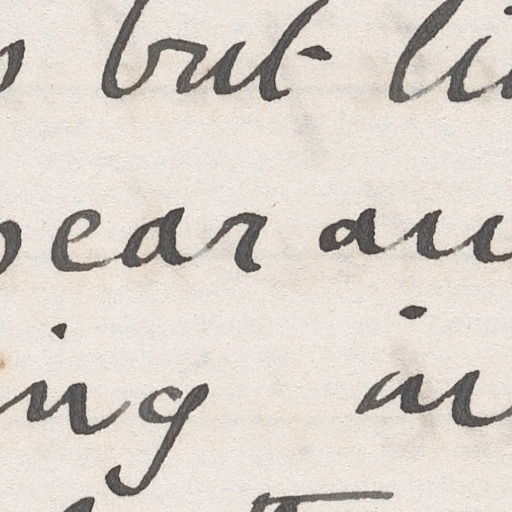 but li
pear an
ing in